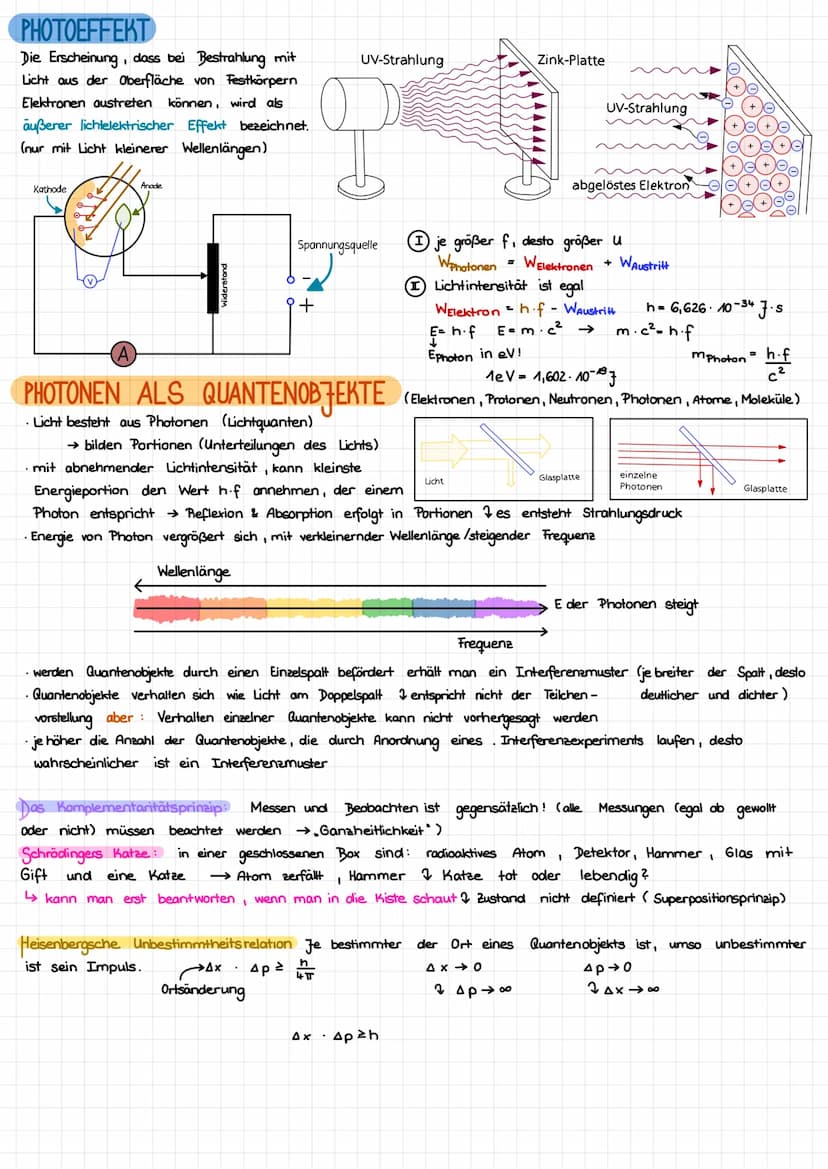 PHOTOEFFEKT
Die Erscheinung, dass bei Bestrahlung mit
Licht aus der Oberfläche von Festkörpern
Elektronen austreten können, wird als
äußerer lichtelektrischer Effekt bezeichnet.
(nur mit Licht kleinerer Wellenlängen)
UV-Strahlung
Zink-Platte
UV-Strahlung
abgelöstes Elektron
Kathode
Anode
V
Widerstand
Spannungsquelle
-
+
A
I je größer f, desto größer U
WPhotonen = WElektronen + WAustritt
II Lichtintensität ist egal
WElektron = h·f - WAustritt h = 6,626 · 10⁻³⁴ J·s
E = h·f E = m · c² → m·c² = h·f
↓
EPhoton in eV! mPhoton = h·f / c²
1eV = 1,602 · 10⁻¹⁹ J
PHOTONEN ALS QUANTENOBJEKTE (Elektronen, Protonen, Neutronen, Photonen, Atome, Moleküle)
· Licht besteht aus Photonen (Lichtquanten)
→ bilden Portionen (Unterteilungen des Lichts)
· mit abnehmender Lichtintensität, kann kleinste
Energieportion den Wert h·f annehmen, der einem
Photon entspricht → Reflexion & Absorption erfolgt in Portionen ↯ es entsteht Strahlungsdruck
· Energie von Photon vergrößert sich, mit verkleinernder Wellenlänge/steigender Frequenz
Licht
Glasplatte
einzelne
Photonen
Glasplatte
Wellenlänge
E der Photonen steigt
Frequenz
· werden Quantenobjekte durch einen Einzelspalt befördert erhält man ein Interferenzmuster (je breiter der Spalt, desto
deutlicher und dichter)
· Quantenobjekte verhalten sich wie Licht am Doppelspalt ↯ entspricht nicht der Teilchen-
vorstellung aber: Verhalten einzelner Quantenobjekte kann nicht vorhergesagt werden
· je höher die Anzahl der Quantenobjekte, die durch Anordnung eines . Interferenzexperiments laufen, desto
wahrscheinlicher ist ein Interferenzmuster
Das Komplementaritätsprinzip: Messen und Beobachten ist gegensätzlich! (alle Messungen (egal ob gewollt
oder nicht) müssen beachtet werden → „Ganzheitlichkeit")
Schrödingers Katze: in einer geschlossenen Box sind: radioaktives Atom, Detektor, Hammer, Glas mit
Gift und eine Katze → Atom zerfällt, Hammer ↯ Katze tot oder lebendig?
↳ kann man erst beantworten, wenn man in die Kiste schaut ↯ Zustand nicht definiert (Superpositionsprinzip)
Heisenbergsche Unbestimmtheitsrelation Je bestimmter der Ort eines Quantenobjekts ist, umso unbestimmter
ist sein Impuls. Δx · Δp ≥ h / 4π Δx → 0 Δp → 0
Ortsänderung ↯ Δp → ∞ ↯ Δx → ∞
Δx · Δp ≥ h